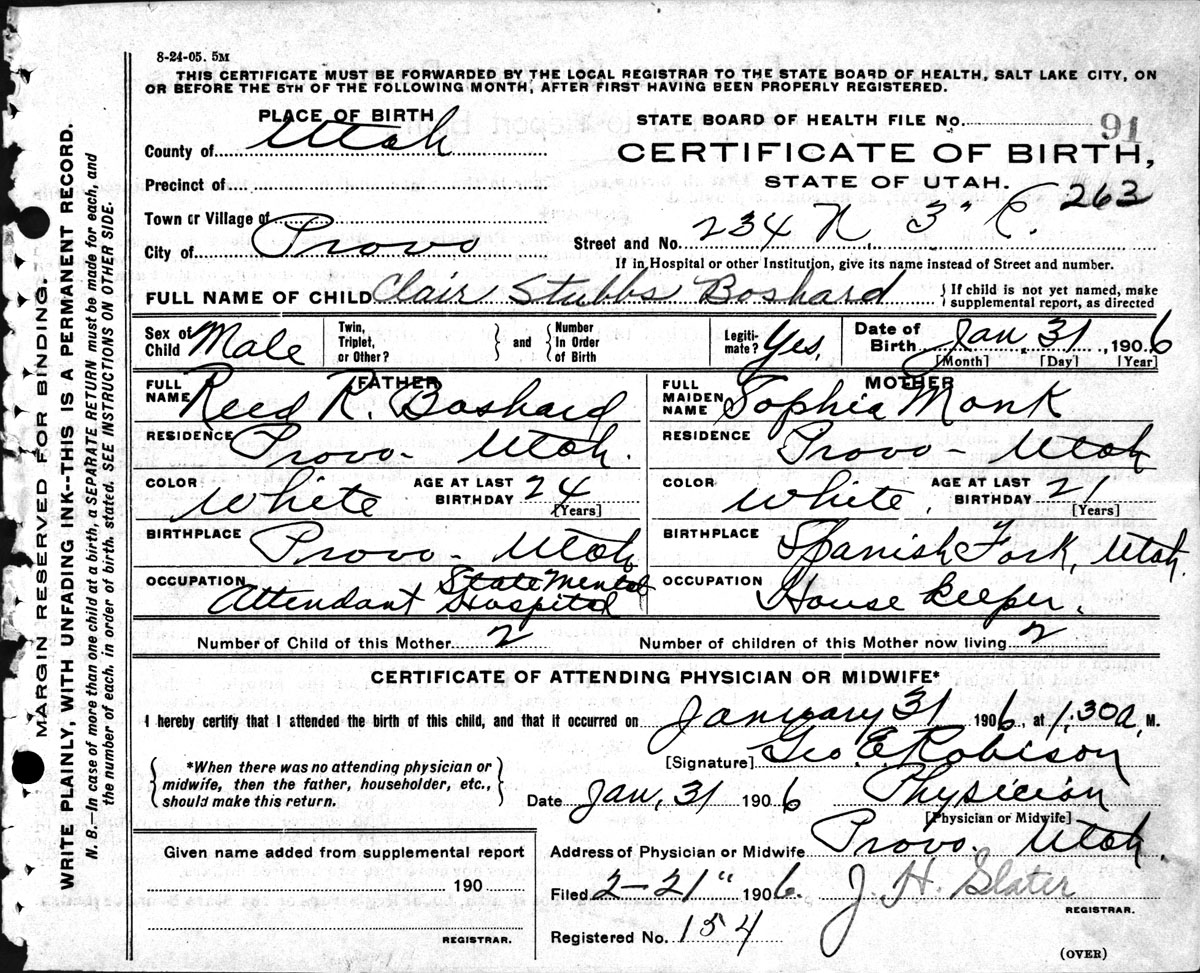 8-24-05. 5M
THIS CERTIFICATE MUST BE FORWARDED BY THE LOCAL REGISTRAR TO THE STATE BOARD OF HEALTH, SALT LAKE CITY, ON
OR BEFORE THE 5TH OF THE FOLLOWING MONTH, AFTER FIRST HAVING BEEN PROPERLY REGISTERED.
PLACE OF BIRTH
County of Utah
Precinct of
Town or Village of
City of Provo
STATE BOARD OF HEALTH FILE No. 91
CERTIFICATE OF BIRTH,
STATE OF UTAH.
263
Street and No. 234 N 3" E.
If in Hospital or other Institution, give its name instead of Street and number.
FULL NAME OF CHILD Clair Stubbs Boshard
If child is not yet named, make
supplemental report, as directed
Sex of Child Male
Twin, Triplet, or Other?
and
Number In Order of Birth
Legiti-mate? Yes,
Date of Birth Jan, 31, 1906
[Month] [Day] [Year]
FATHER
FULL NAME Reed R. Boshard
RESIDENCE Provo- Utah.
COLOR White
AGE AT LAST BIRTHDAY 24
[Years]
BIRTHPLACE Provo- Utah
OCCUPATION Attendant State Mental Hospital
MOTHER
FULL MAIDEN NAME Sophia Monk
RESIDENCE Provo- Utah
COLOR White,
AGE AT LAST BIRTHDAY 21
[Years]
BIRTHPLACE Spanish Fork, Utah.
OCCUPATION House keeper.
Number of Child of this Mother 2
Number of children of this Mother now living 2
CERTIFICATE OF ATTENDING PHYSICIAN OR MIDWIFE*
I hereby certify that I attended the birth of this child, and that it occurred on January 31 1906, at 1:30 a, M.
*When there was no attending physician or
midwife, then the father, householder, etc.,
should make this return.
[Signature] Geo. E. Robison
Date Jan, 31 1906
Physician
[Physician or Midwife]
Address of Physician or Midwife Provo. Utah.
Given name added from supplemental report
190
REGISTRAR.
Filed 2-21" 1906.
J. H. Slater
REGISTRAR.
Registered No. 154
(OVER)
MARGIN RESERVED FOR BINDING.
WRITE PLAINLY, WITH UNFADING INK--THIS IS A PERMANENT RECORD.
N. B.--In case of more than one child at a birth, a SEPARATE RETURN must be made for each, and
the number of each, in order of birth, stated. SEE INSTRUCTIONS ON OTHER SIDE.